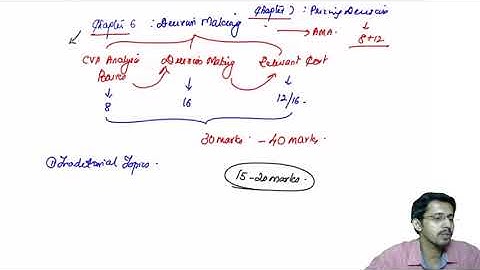 Chapter 6 : Decision Making
Chapter 7 : Pricing Decision
8+12
CVP Analysis Decision Making Relevant Cost
Basics
8 16 12/16.
30 marks. - 40 marks.
① Traditional Topics.
15-20 marks.